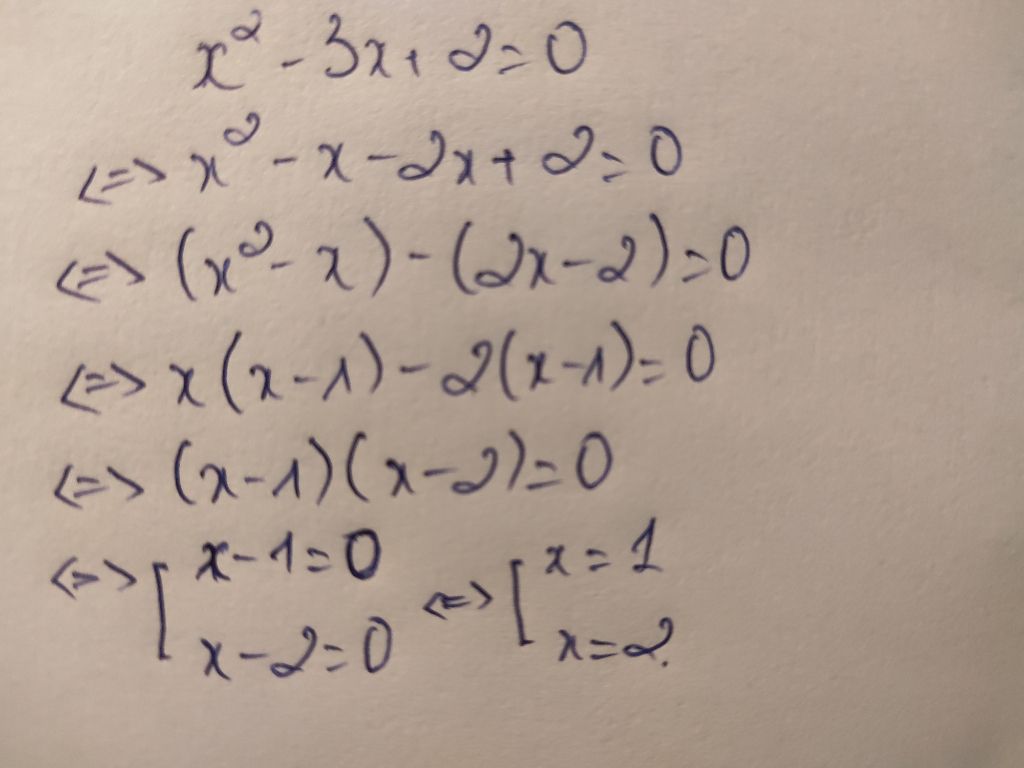 x² - 3x + 2 = 0
<=> x² - x - 2x + 2 = 0
<=> (x² - x) - (2x - 2) = 0
<=> x(x - 1) - 2(x - 1) = 0
<=> (x - 1)(x - 2) = 0
<=> [ x - 1 = 0 <=> [ x = 1
x - 2 = 0 x = 2.